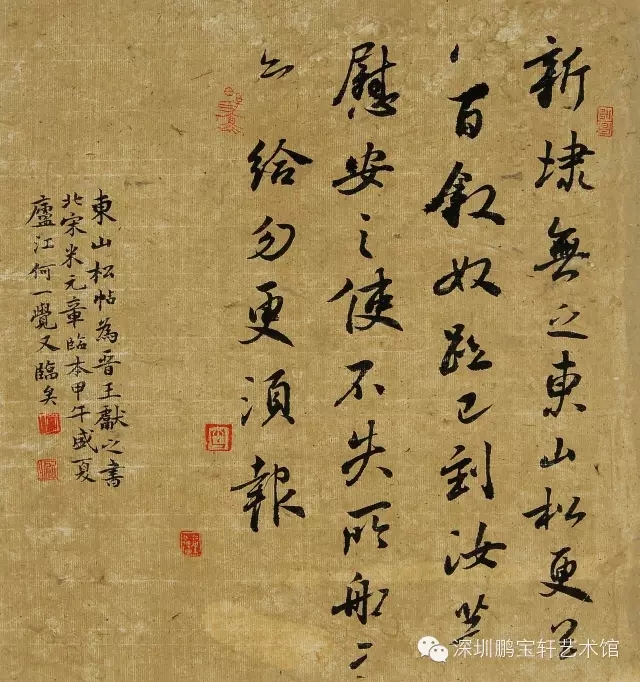 新埭無乏東山松更送
百敘奴已到汝等
慰安之使不失所船
給勿更須報
東山松帖為晉王獻之書
北宋米元章臨本甲午盛夏
廬江何一覺又臨矣
深圳鹏宝轩艺术馆